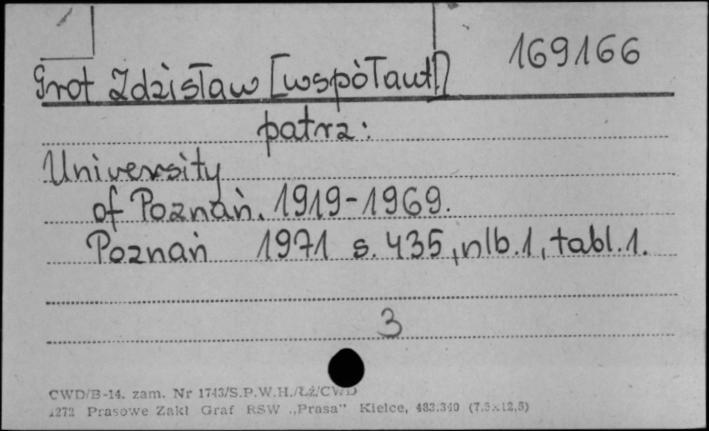 169166
Grot Zdzisław [współaut.]
patrz:
University
of Poznań. 1919-1969.
Poznań 1971 s. 435, nlb. 1, tabl. 1.
3
CWD/B-14. zam. Nr 1743/S.P.W.H./Łż/CWD
1272 Prasowe Zakł Graf RSW „Prasa” Kielce, 483.340 (7.5x12,5)